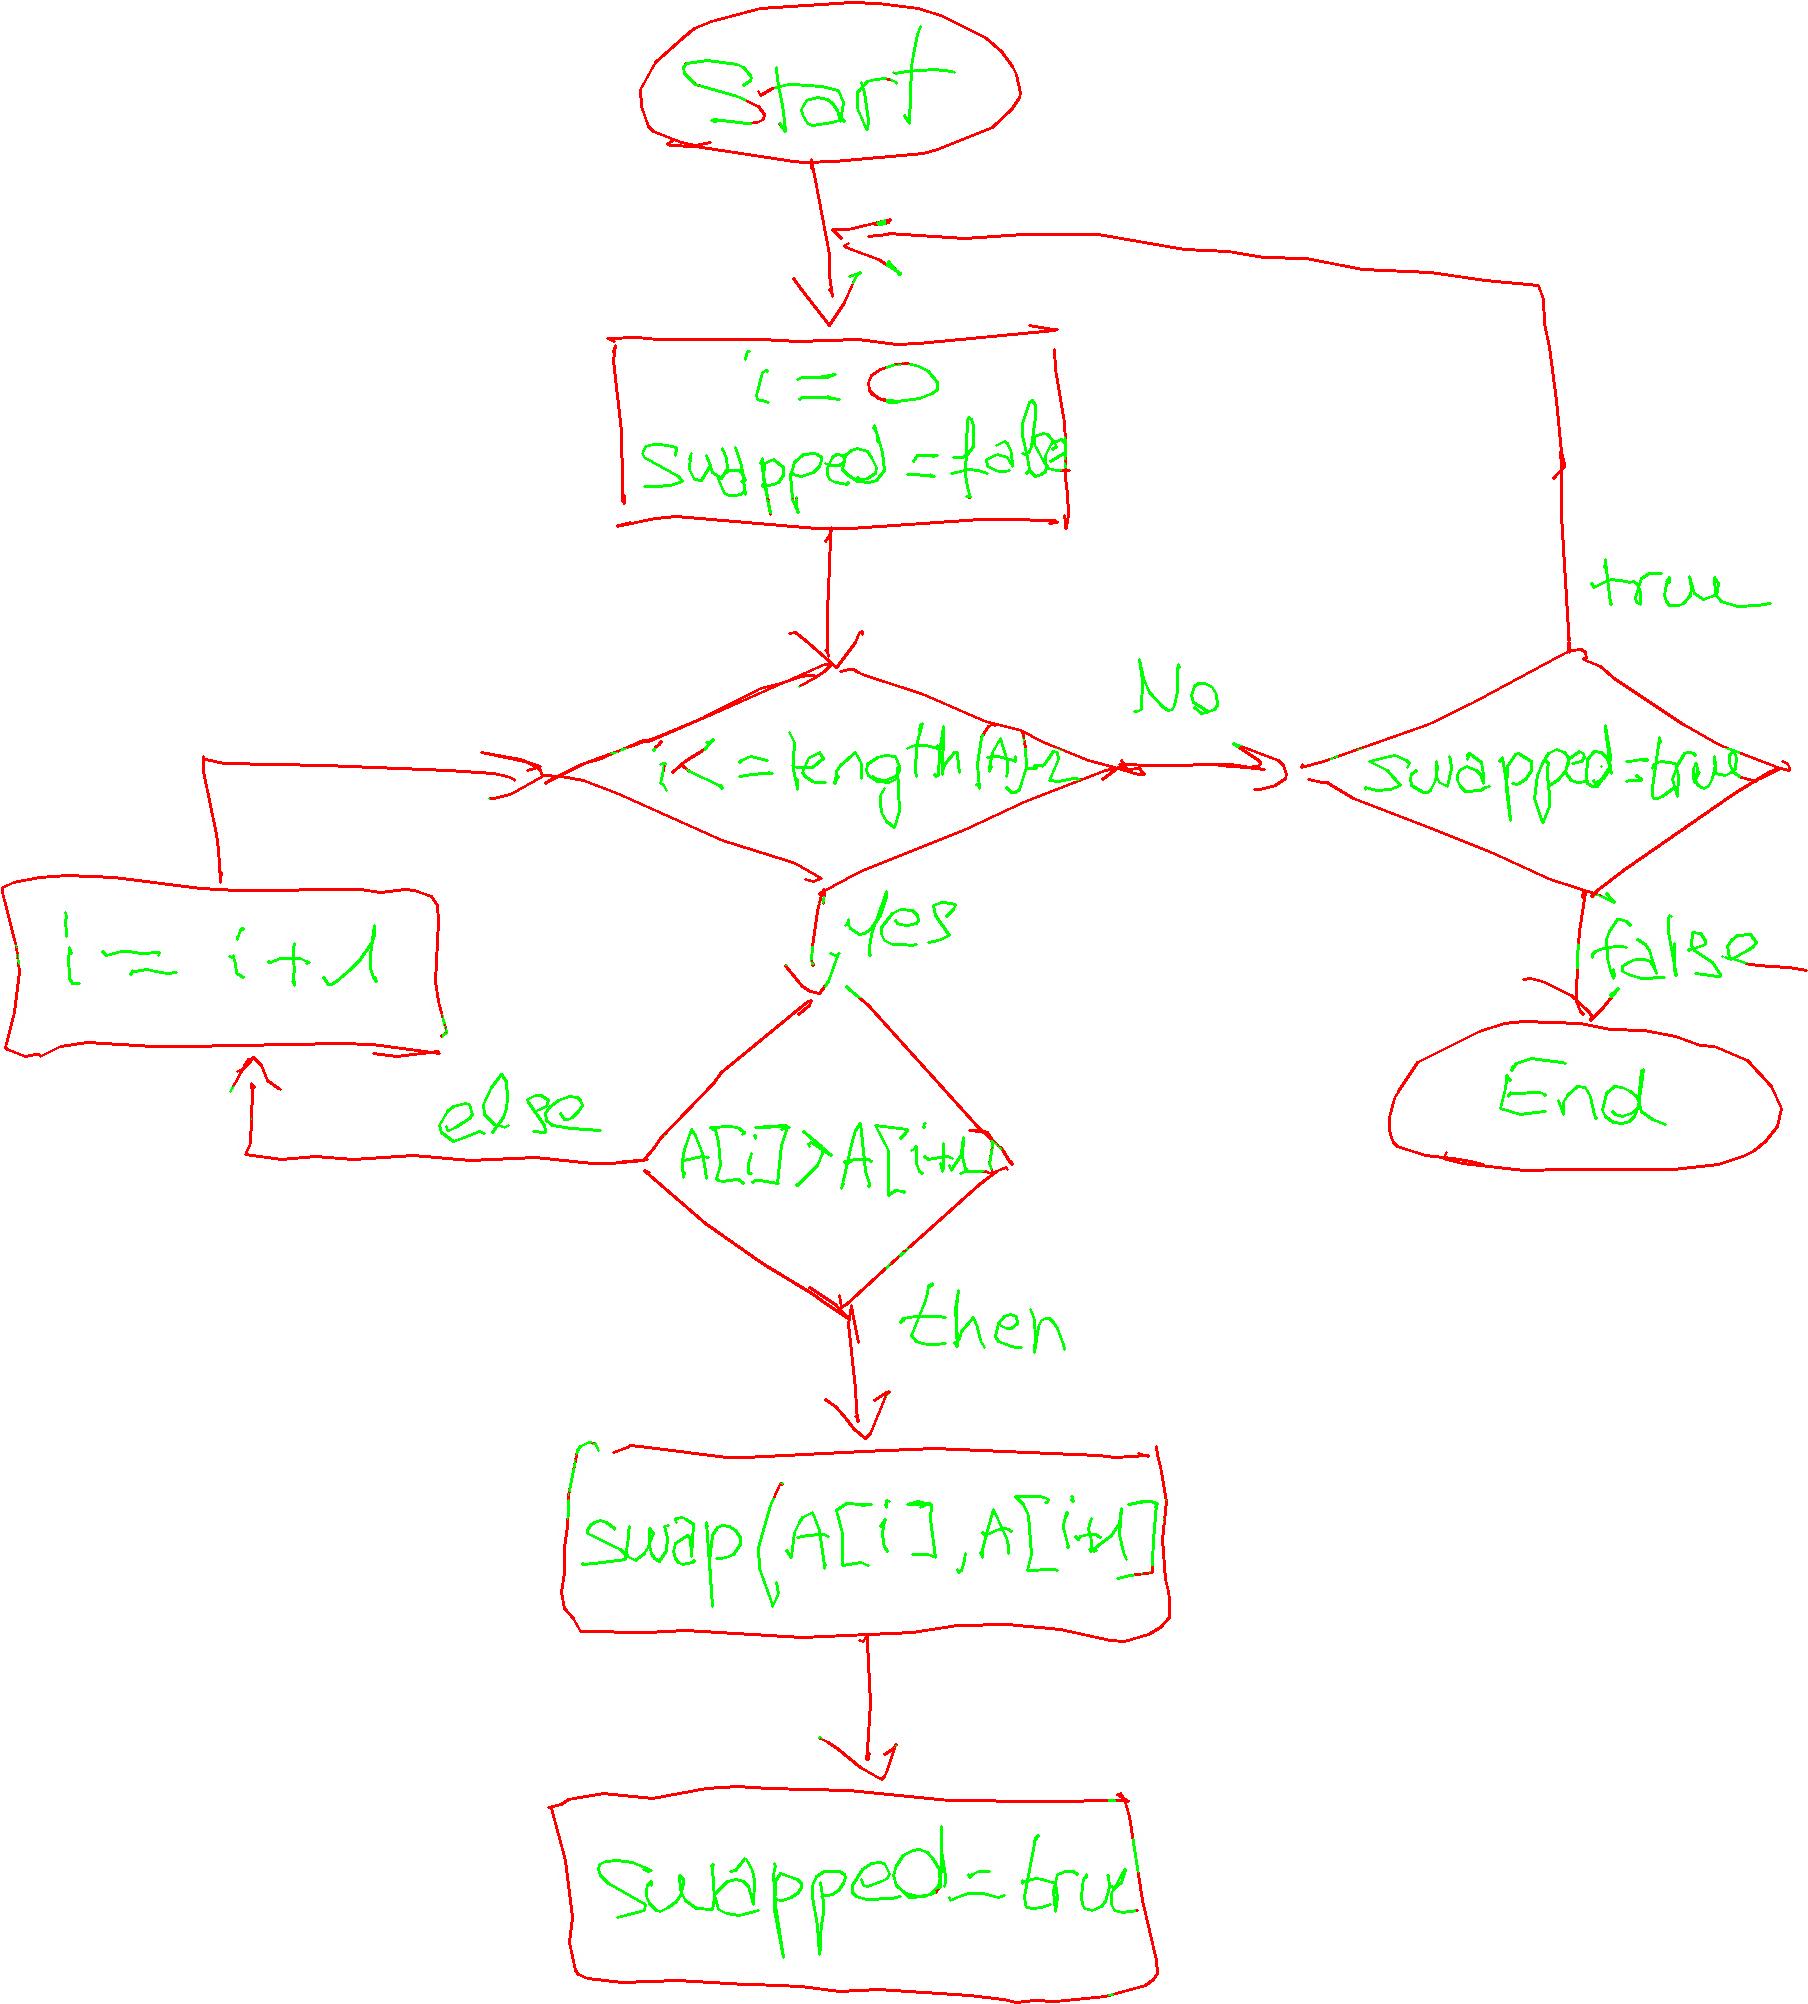 Start
i = 0
swapped = false
true
No
i <= length(A)-2
swapped = true
yes
i = i + 1
false
End
else
A[i] > A[i+1]
then
swap(A[i], A[i+1]
swapped = true